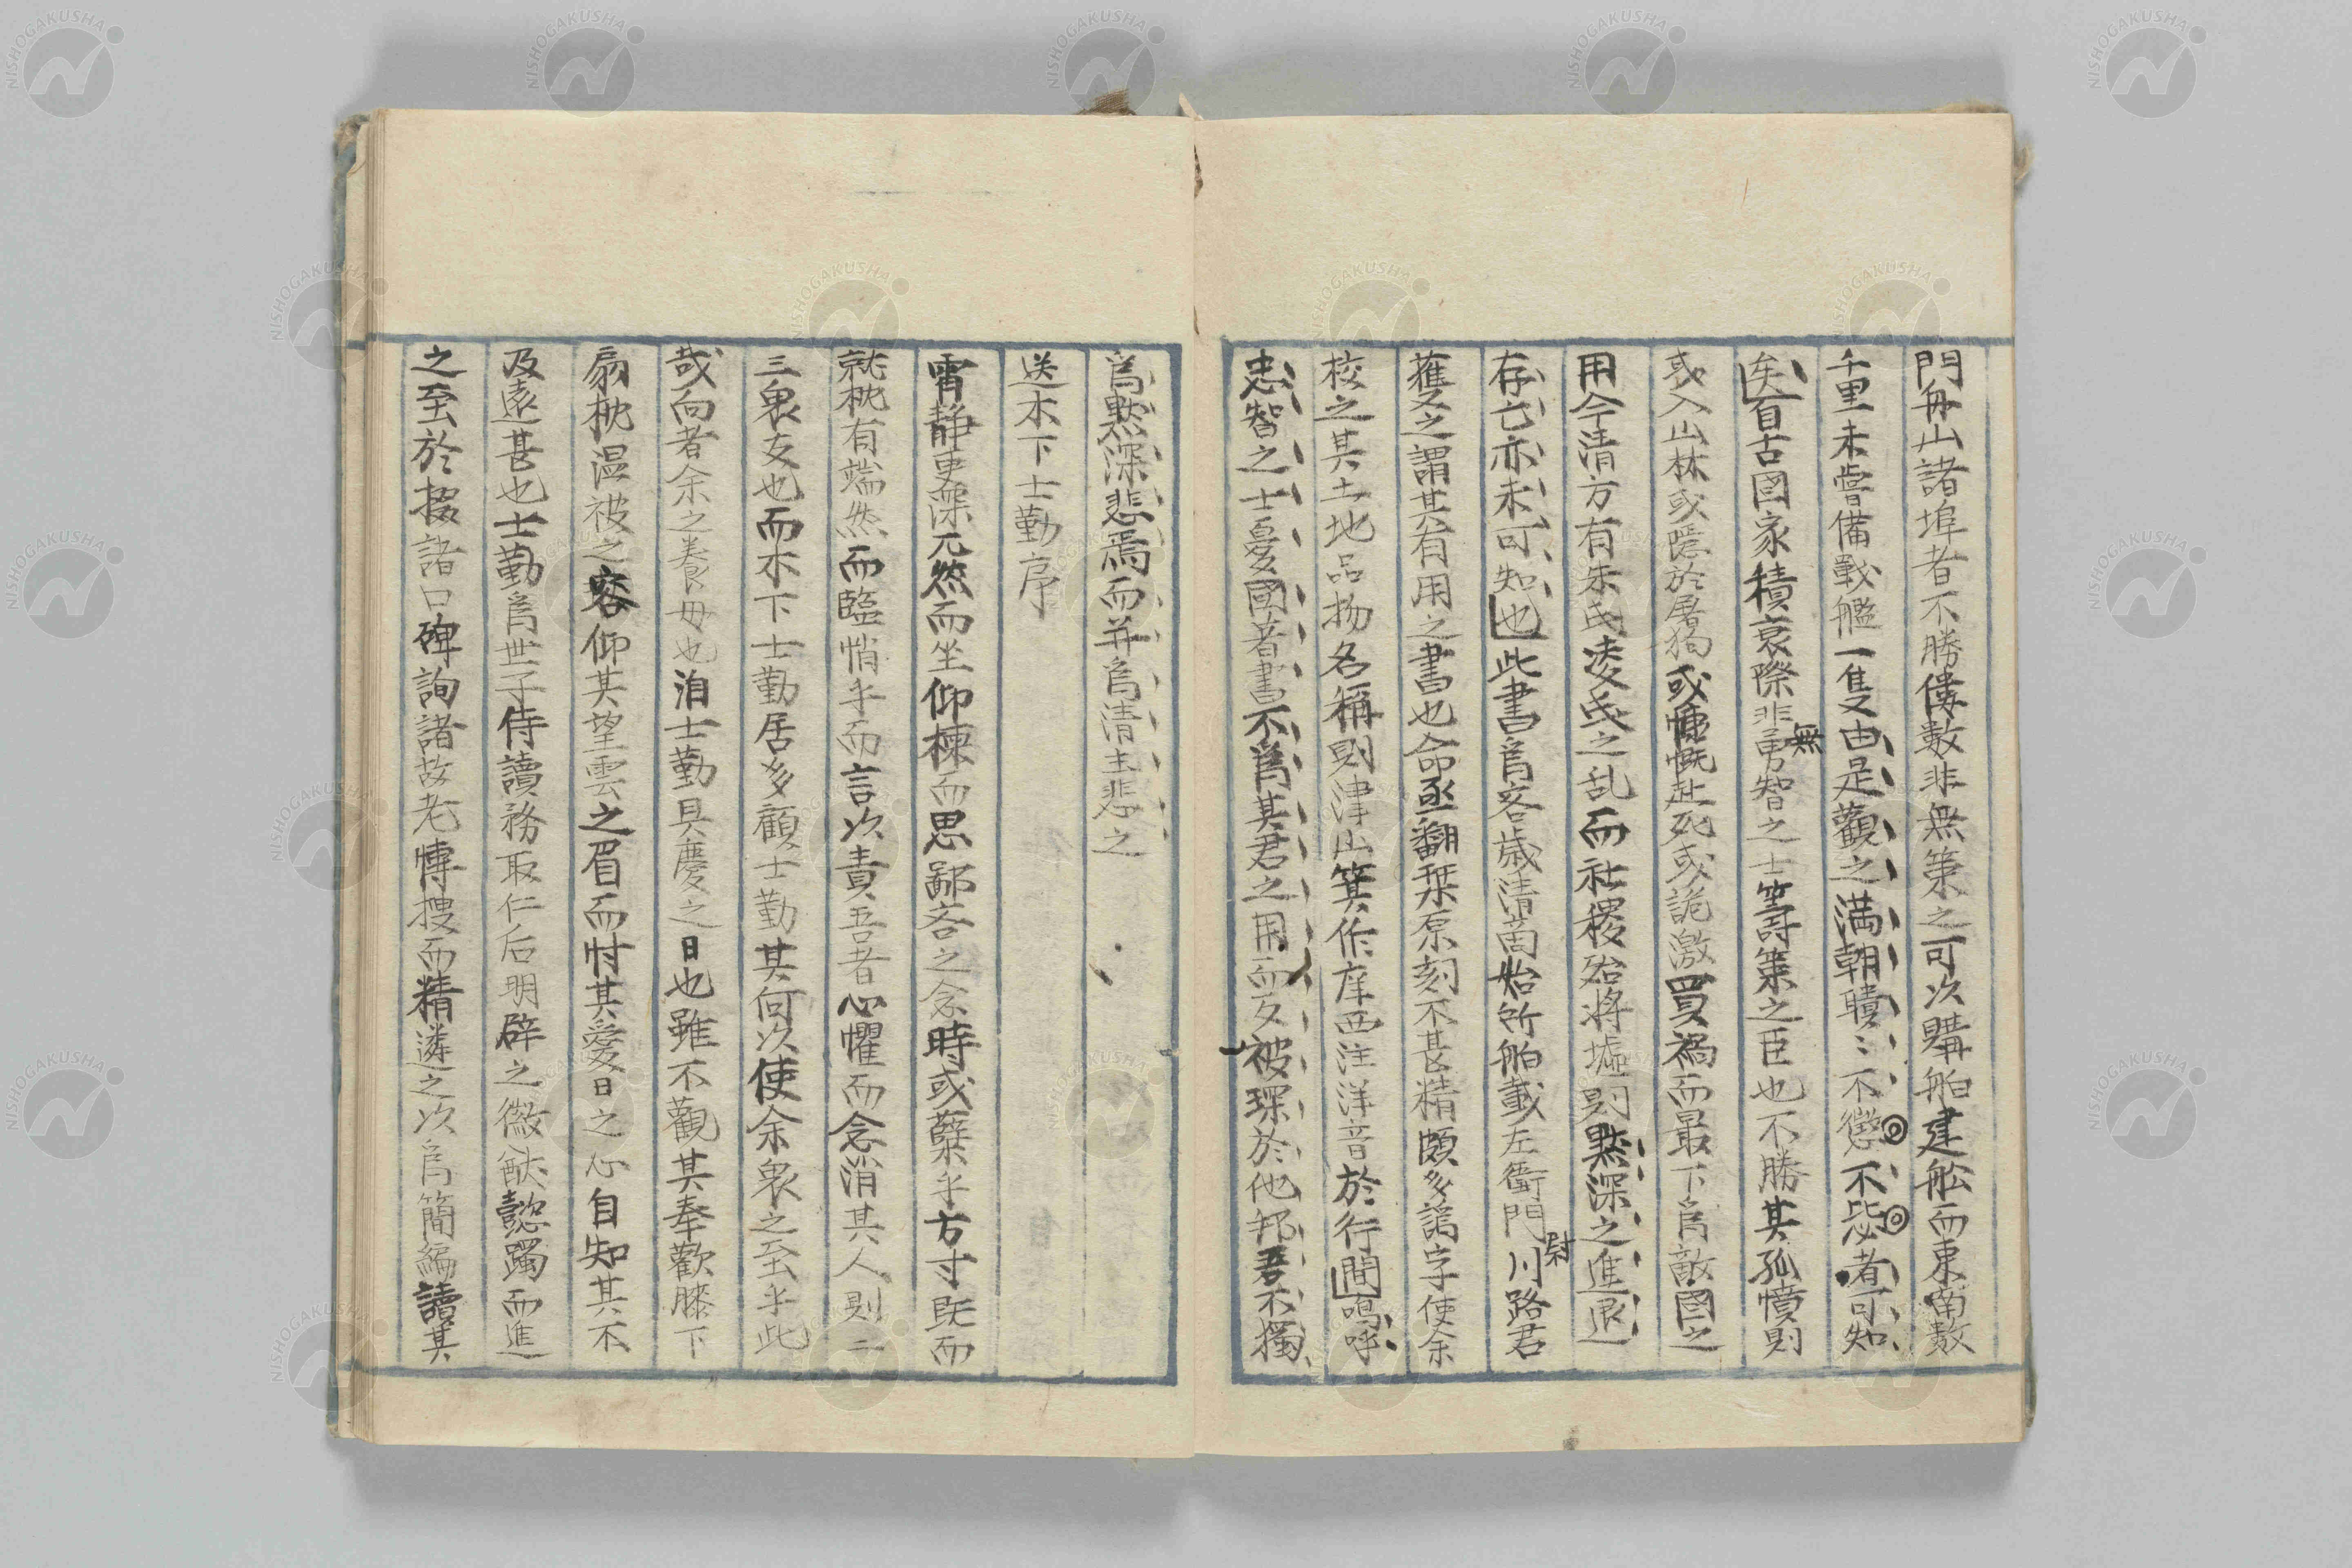 門舟山諸埠者不勝僂數非無策之可以購舶建舩而東南數
千里未嘗備戰艦一隻由是觀之満朝聵〻不懲不毖者可知
矣自古国家積衰際非無勇智之士籌策之臣也不勝其孤憤則
或入山林或隠於屠狗或慷慨赴死或詭激買禍而最下為敵國之
用今清方有朱氏凌氏之乱而社稷殆將墟則黙深之進退
存亡亦未可知也此書為客歳清商始所舶載左衛門尉川路君
獲之謂其有用之書也命亟翻栞原刻不甚精頗多譌字使余
校之其土地品物名稱則津山箕作庠西注洋音於行間嗚呼
忠智之士憂國著書不為其君之用而反被琛於他邦吾不獨
為黙深悲焉而并為清主悲之
送木下士勤序
宵静更深兀然而坐仰棟而思鄙吝之念時或蘖乎方寸既而
就枕有端然而臨悄乎而言以責吾者心懼而念消其人則二
三衆友也而木下士勤居多顧士勤其何以使余衆之至乎此
哉向者余之養母也洎士勤具慶之日也雖不觀其奉歡膝下
扇枕温被之容仰其望雲之眉而忖其愛日之心自知其不
及遠甚也士勤為世子侍讀務取仁后明辟之徽猷懿躅而進
之至於掇諸口碑詢諸故老博捜而精遴之以為簡編讀其
NISHOGAKUSHA